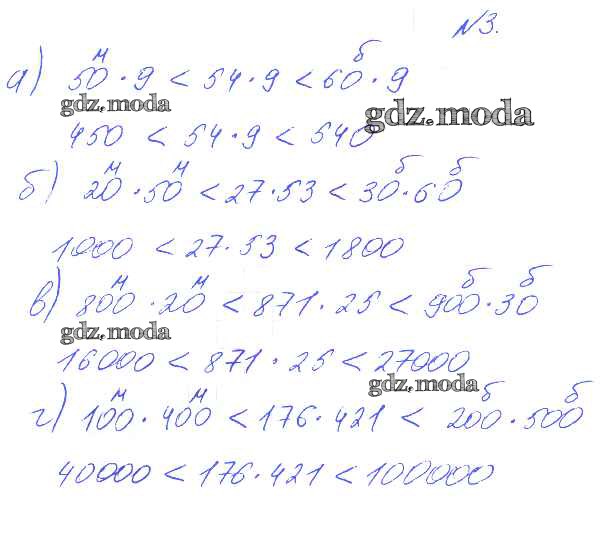 №3.
м б
а) 50 · 9 < 54 · 9 < 60 · 9
gdz.moda gdz.moda
450 < 54 · 9 < 540
м м б б
б) 20 · 50 < 27 · 53 < 30 · 60
1000 < 27 · 53 < 1800
м м б б
в) 800 · 20 < 871 · 25 < 900 · 30
gdz.moda
16000 < 871 · 25 < 27000
gdz.moda
м м б б
г) 100 · 400 < 176 · 421 < 200 · 500
40000 < 176 · 421 < 100000